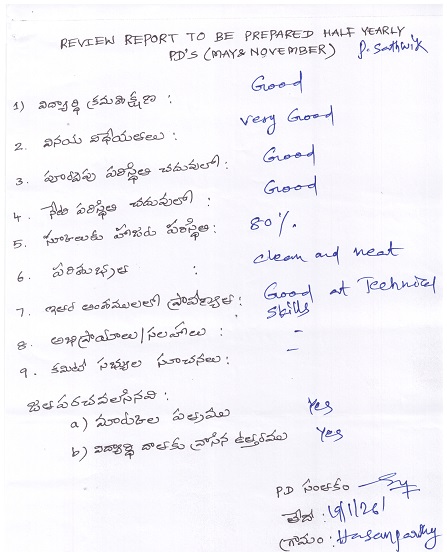 REVIEW REPORT TO BE PREPARED HALF YEARLY
PD'S (MAY & NOVEMBER) P. Sathwik
1) విద్యార్థి క్రమశిక్షణ : Good
2. వినయ విధేయతలు : Very Good
3. పూర్వపు పరిస్థితి చదువులో : Good
4. నేటి పరిస్థితి చదువులో : Good
5. స్కూలుకు హాజరు పరిస్థితి : 80%.
6. పరిశుభ్రత : clean and neat
7. ఇతర అంశములలో ప్రావీణ్యత : Good at Technical
skills
8. అభిప్రాయాలు/సలహాలు : -
9. కమిటీ సభ్యుల సూచనలు : -
జతపరచవలసినవి :
a) మార్కుల పత్రము Yes
b) విద్యార్థి దాతకు వ్రాసిన ఉత్తరము Yes
P.D సంతకం
తేది : 19/1/26/
గ్రామం : Hasanparthy